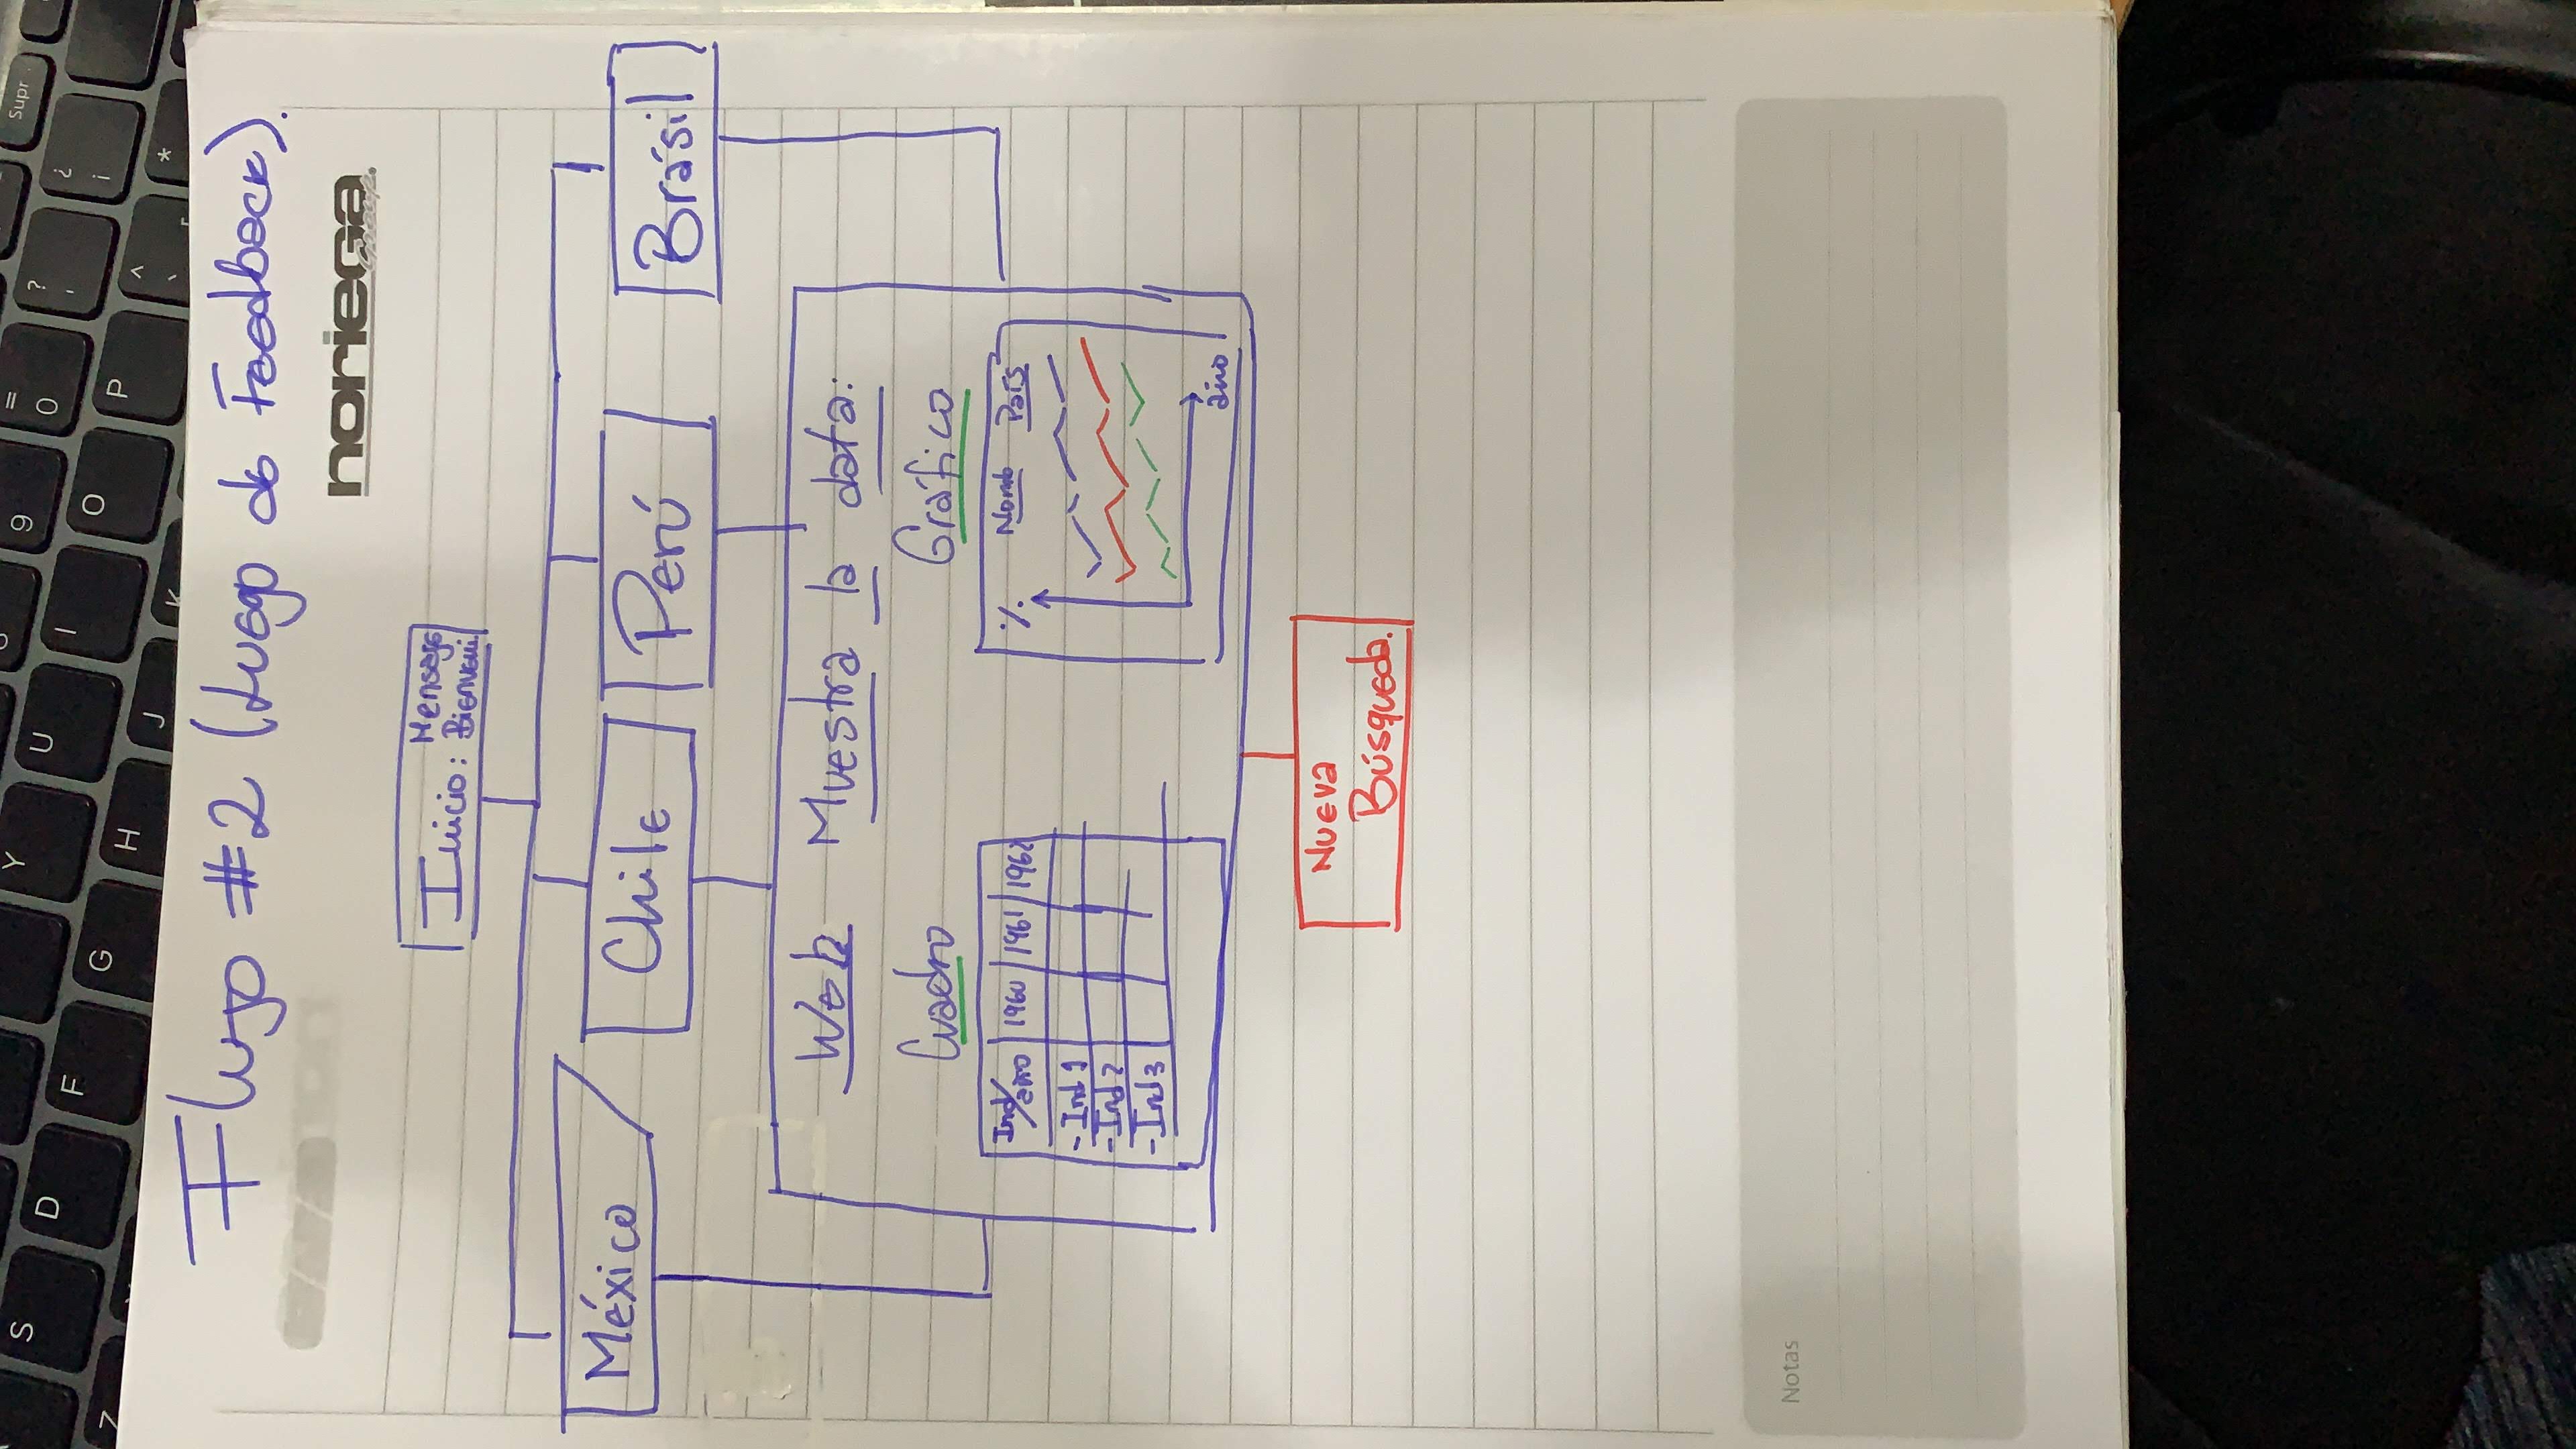 S D F G H J K
Y U I O P
9 = 0 ? ' ¿ ¡ Supr
^ ` [ *
Z
Flujo #2 (Luego de Feedback).
noriega
Group.
Inicio: Mensaje
Bienveni.
México Chile Perú Brásil
Web Muestra la data:
Cuadro Gráfico
Ind/año 1960 1961 1962
- Ind 1
- Ind 2
- Ind 3
%. Nomb País
año
Nueva
Búsqueda.
Notas